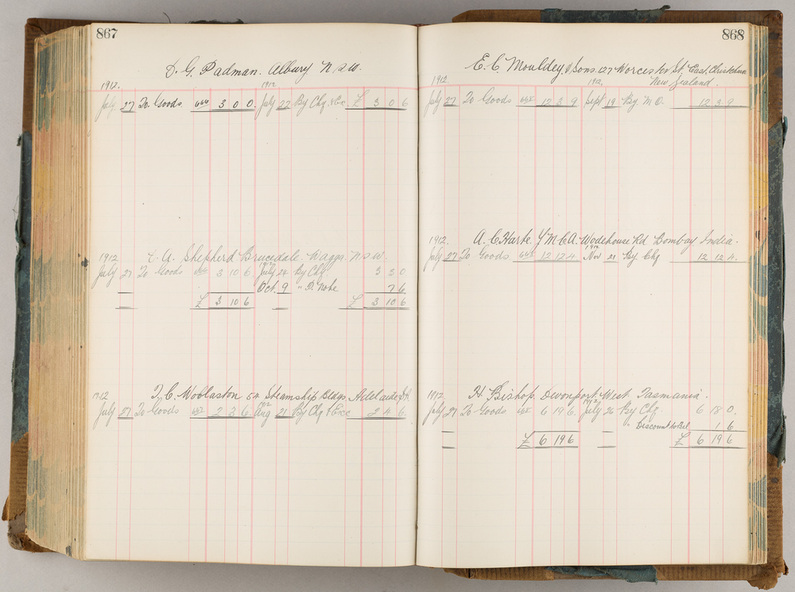 867
D. G. Padman. Albury N.S.W.
1912. 1912
July 27 To Goods 3 0 0 July 27 By Chq £ 3 0 6
1912 C. A. Shepherd Brucedale Wagga N.S.W.
July 27 To Goods 3 10 6 July By Chq 3 3 0
Oct 9 " D. Note 7 6
£ 3 10 6 £ 3 10 6
1912 T. C. Wollaston Steamship Bldgs. Adelaide
July 27 To Goods 2 3 6 Aug 21 By Chq 2 4 6
868
E. C. Mouldey & Sons. 127 Worcester St. East, Christchurch
New Zealand.
1912 1912
July 27 To Goods 12 3 9 Sept 19 By M.O. 12 3 9
1912. A. C. Harte Y.M.C.A. Wodehouse Rd Bombay India.
July 27 To Goods 12 12 4 Nov 21 By Chq 12 12 4
1912 H. Bishop Devonport West Tasmania.
July 27 To Goods 6 19 6 July 26 By Chq 6 18 0
" Discount 1 6
£ 6 19 6 £ 6 19 6